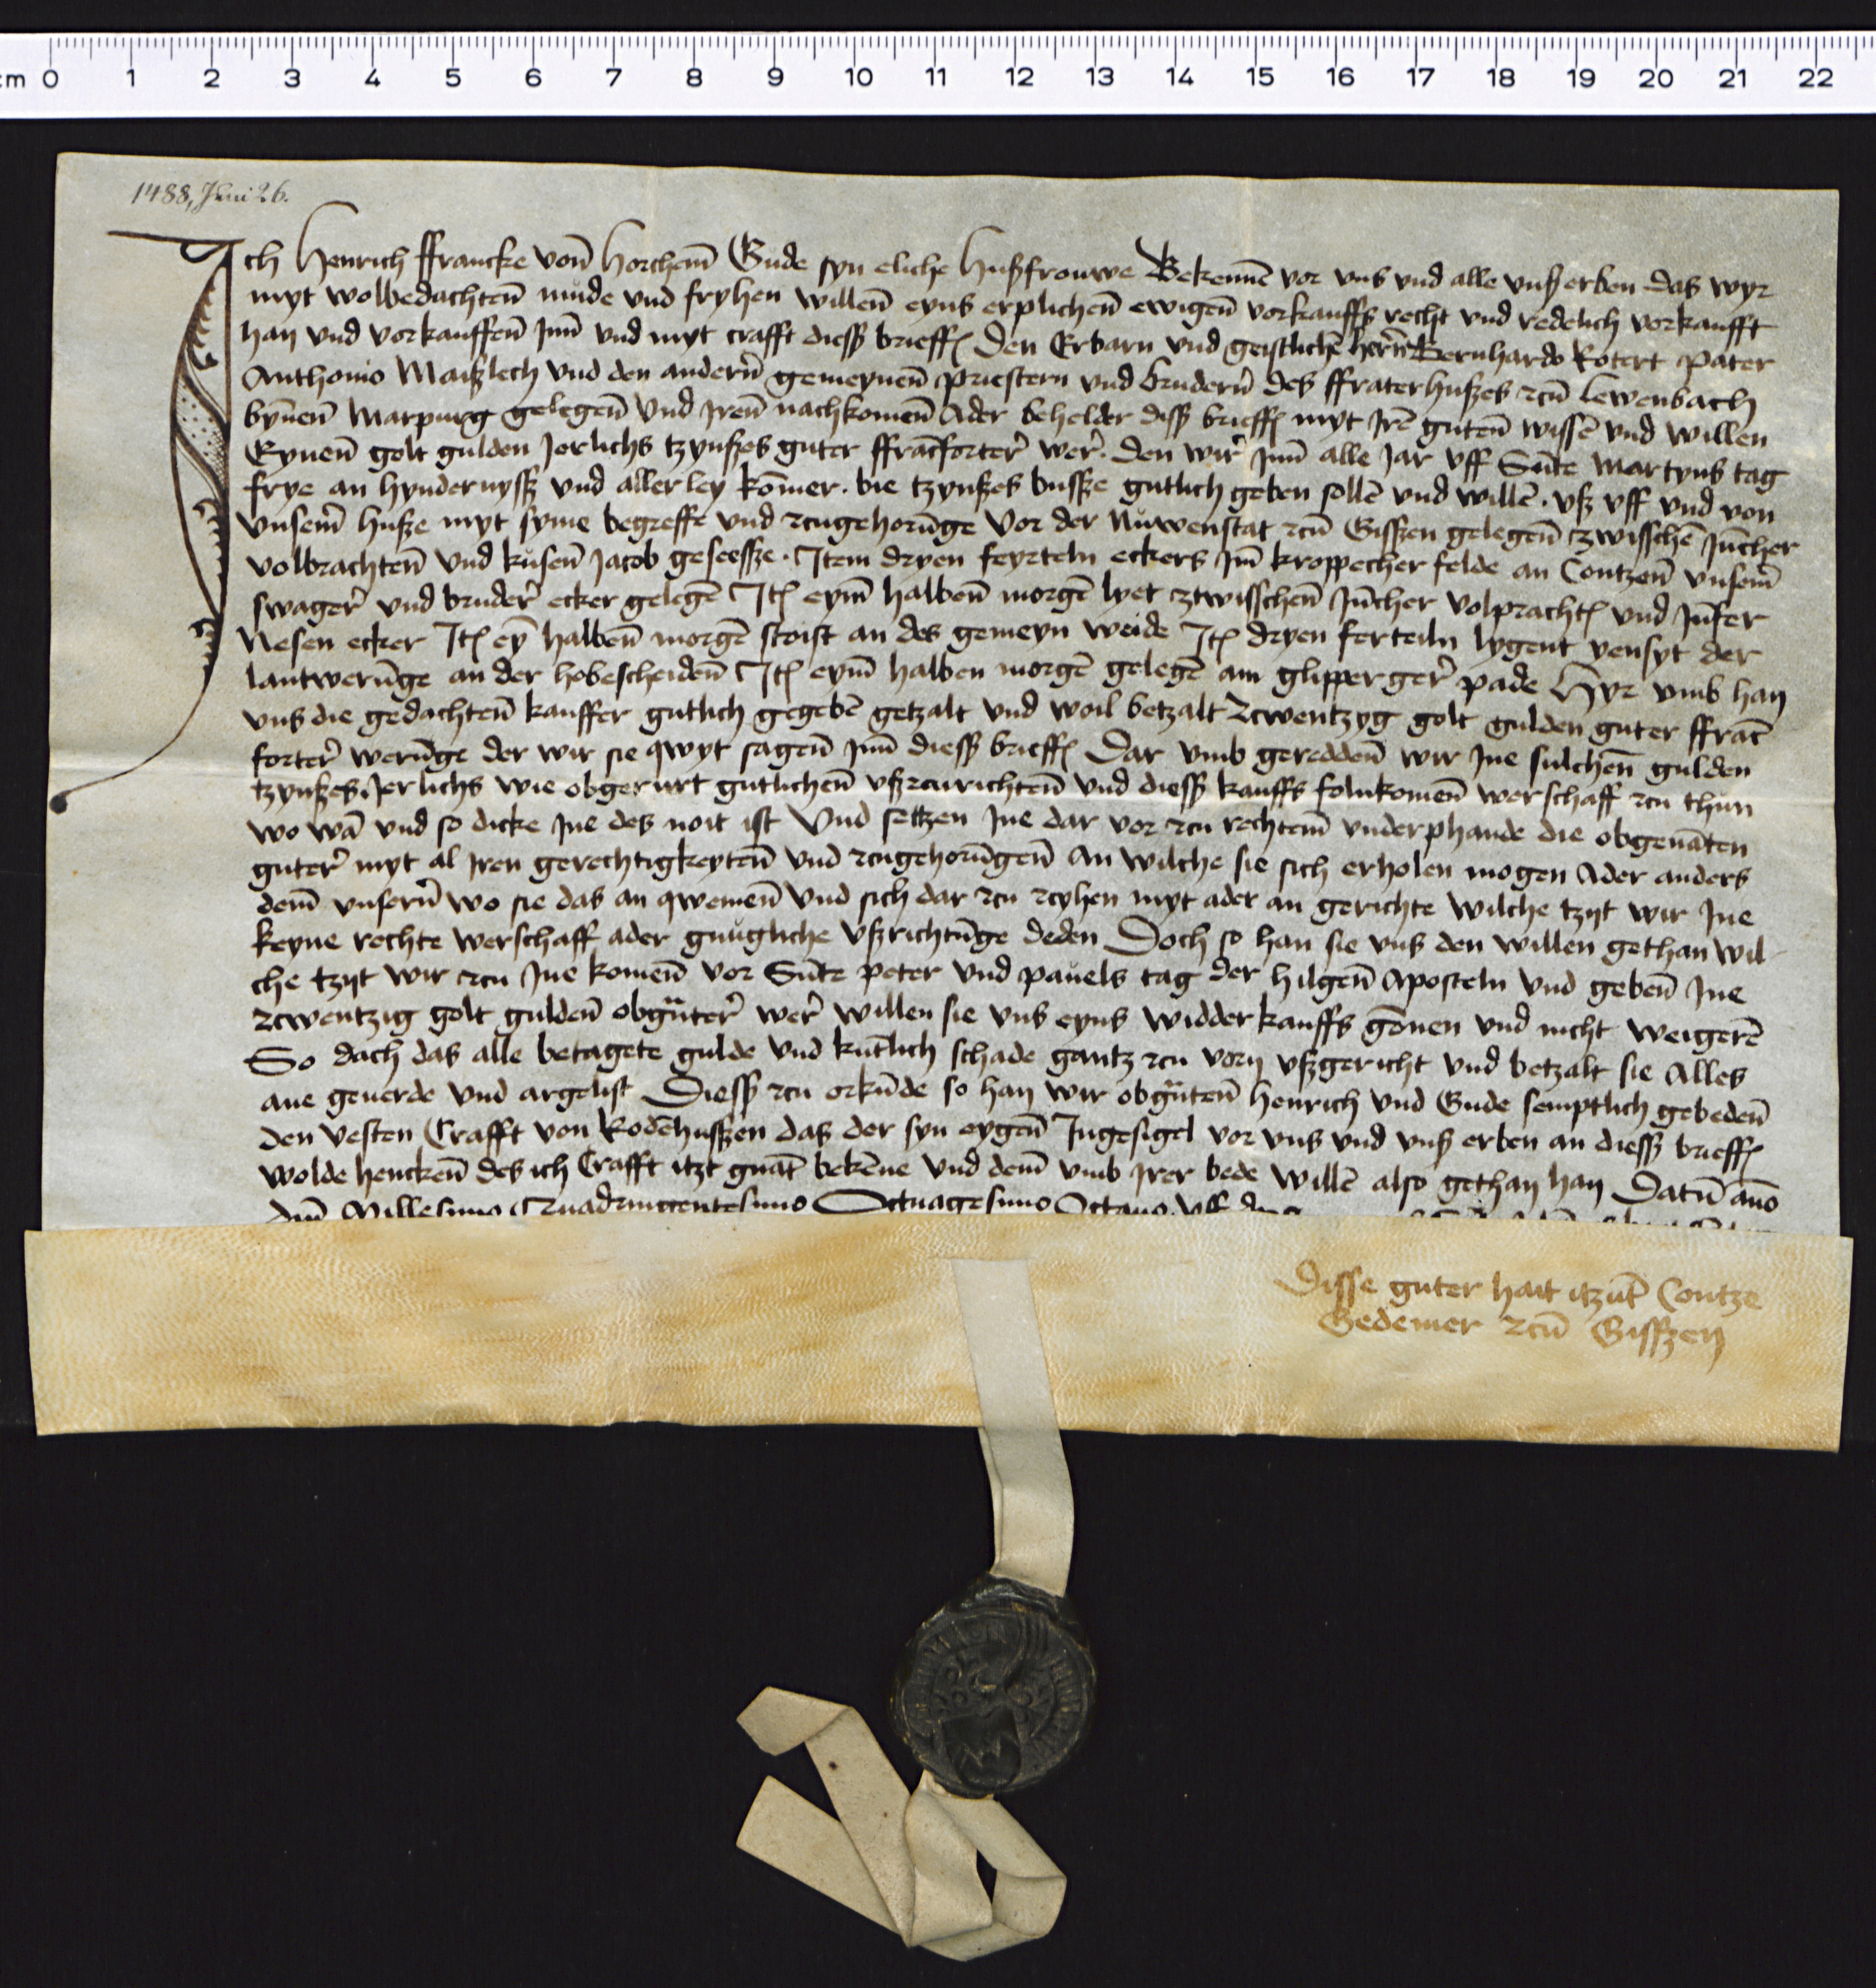 cm 0 1 2 3 4 5 6 7 8 9 10 11 12 13 14 15 16 17 18 19 20 21 22
1488, Juni 26.
Ich Henrich ffrancke von̄ horchem̄ Gude syn eliche hußfrouwe Bekennē vor vns vnd alle vnß erben das wyr
myt wolbedachten̄ mude vnd fryhen willen̄ eyns erplichen̄ ewigen̄ vorkauffs recht vnd redelich vorkaufft
han vnd vorkauffen̄ Jnn̄ vnd myt crafft diess brieffs Den Erbarn vnd geistlichē hern̄ Bernhardo Rotert pater
Anthonio Maißlech vnd den andern̄ gemeynen̄ priestern vnd brudern̄ des ffraterhußes zcu Lewenbach
bynen̄ Marpurg gelegen̄ vnd Jren̄ nachkomen̄ Ader behelder diss brieffs myt Jrē guten̄ wissē vnd willen
Eynen̄ golt gulden Jerlichs tzynßes guter ffrācforter̄ wer̄ . den wir̄ Jnn̄ alle Jar vff Sūte Martyns tag
frye an hyndernyss vnd allerley kōmer . bie tzynßes busse gutlich geben sollē vnd willē . vß vff vnd von
vnsem̄ huße myt syme begreffe vnd zcugehorūge vor der Nuwenstat zcu Gissen gelegen̄ tzwisschē Jūcher
volbrachten̄ vnd kusen̄ Jacob geseesse . Item dryen feyrteln eckers Jm̄ kroppecher felde an Contzen̄ vnsem̄
swager̄ vnd bruder̄ ecker gelegē Itē eym̄ halben̄ morgē lyet tzwisschen̄ Jūcher volprachtē vnd Jūfer
Nesen ecker Itē eȳ halben̄ morgē stoist an des gemeyn weide Itē dryen ferteiln lygent vensyt der
lantwerūge an der hobescheiden̄ Itē eym̄ halben morgē gelegē am glipperger̄ pade Hyr vmb han
vns die gedachten̄ kauffer gutlich gegebē getzalt vnd woil betzalt zcwentzyg golt gulden guter ffrāc
forter̄ werūge der wir sie qwyt sagen̄ Jnn̄ diess brieffs Dar vmb geredden̄ wir Jne sulchen̄ gulden
tzynßes Jerlichs wie obgerurt gutlichen̄ vßzcurichten̄ vnd diess kauffs folnkomen̄ werschaff zcu thun
wo wā vnd so dicke Jne des noit ist Vnd settzen Jne dar vor zcu rechtem̄ vnderphande die obgenāten
guter̄ myt al Jren gerechtigkeyten̄ vnd zcugehorūgen̄ An wilche sie sich erholen mogen Ader anders
dem̄ vnsern̄ wo sie das an qwemen̄ Vnd sich dar zcu zcyhen myt ader an gerichte wilche tzyt wir Jne
keyne rechte werschaff ader gnugliche vßrichtūge deden Doch so han sie vns den willen gethan wil-
che tzyt wir zcu Jne komen̄ vor Sūte peter vnd pauels tag der hilgen̄ Aposteln vnd geben̄ Jne
zcwentzig golt gulden̄ obgn̄ter̄ wer̄ willen sie vns eyns widderkauffs gōnen vnd nicht weigerē
So dach das alle betagete gulde vnd kūtlich schade gantz zcu vorn vßgericht vnd betzalt sie Alles
ane geuerde vnd argelist Diess zcu orkūde so han wir obgn̄ten̄ Henrich vnd Gude semptlich gebeden̄
den vesten Crafft von Rodēhussen das der syn eygen̄ Ingesigel vor vns vnd vnß erben an diess brieffs
wolde hencken̄ des ich Crafft itzt gnāt bekēne vnd dem̄ vmb Jrer bede willē also gethan han Datū āno
dn̄i Millesimo Quadringentesimo Octuagesimo Octauo . vff
Disse guter hait itzūt Contze
Gedemer zcū Gissen